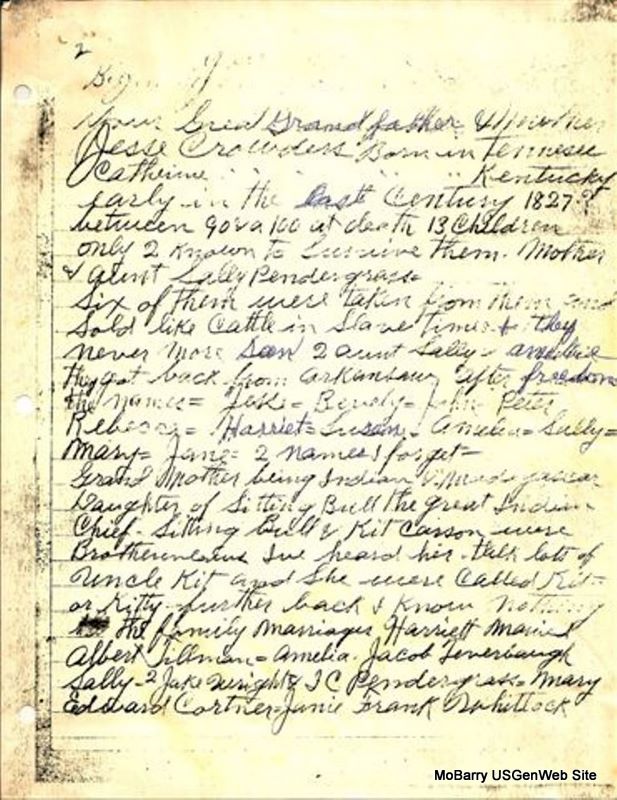 2
Your Great Grand father &
Jesse Crowders Born in Tennesee
Catherine " " " Kentucky
early in the last Century 1827?
between 90 & 100 at death 13 Children
only 2 known to Survive them. Mother
& aunt Sally Pendergrass=
Six of them were taken from them and
Sold like Cattle in Slave times & they
never more Seen 2 aunt Sally & amelia
they got back from arkansaw after freedom
the names= Jake= Bevely= John Peter
Rebecca= Harriet= Susan= Amelia= Sally=
Mary= Jane= 2 names I forget=
Grand Mother being Indian & Madagascar
Daughter of Sitting Bull the great Indian
Chief- Sitting Bull & Kit Carson were
Brotherinlaws Ive heard her talk lots of
Uncle Kit and She were Called Kit=
or Kitty- further back I know nothing
the family Marriages Harriett Married
Albert Tillman= Amelia- Jacob Leverbaugh
Sally- 2 Jake Wright & J C Pendergrass= Mary
Edward Cortner= Janie Frank Whittock
MoBarry USGenWeb Site